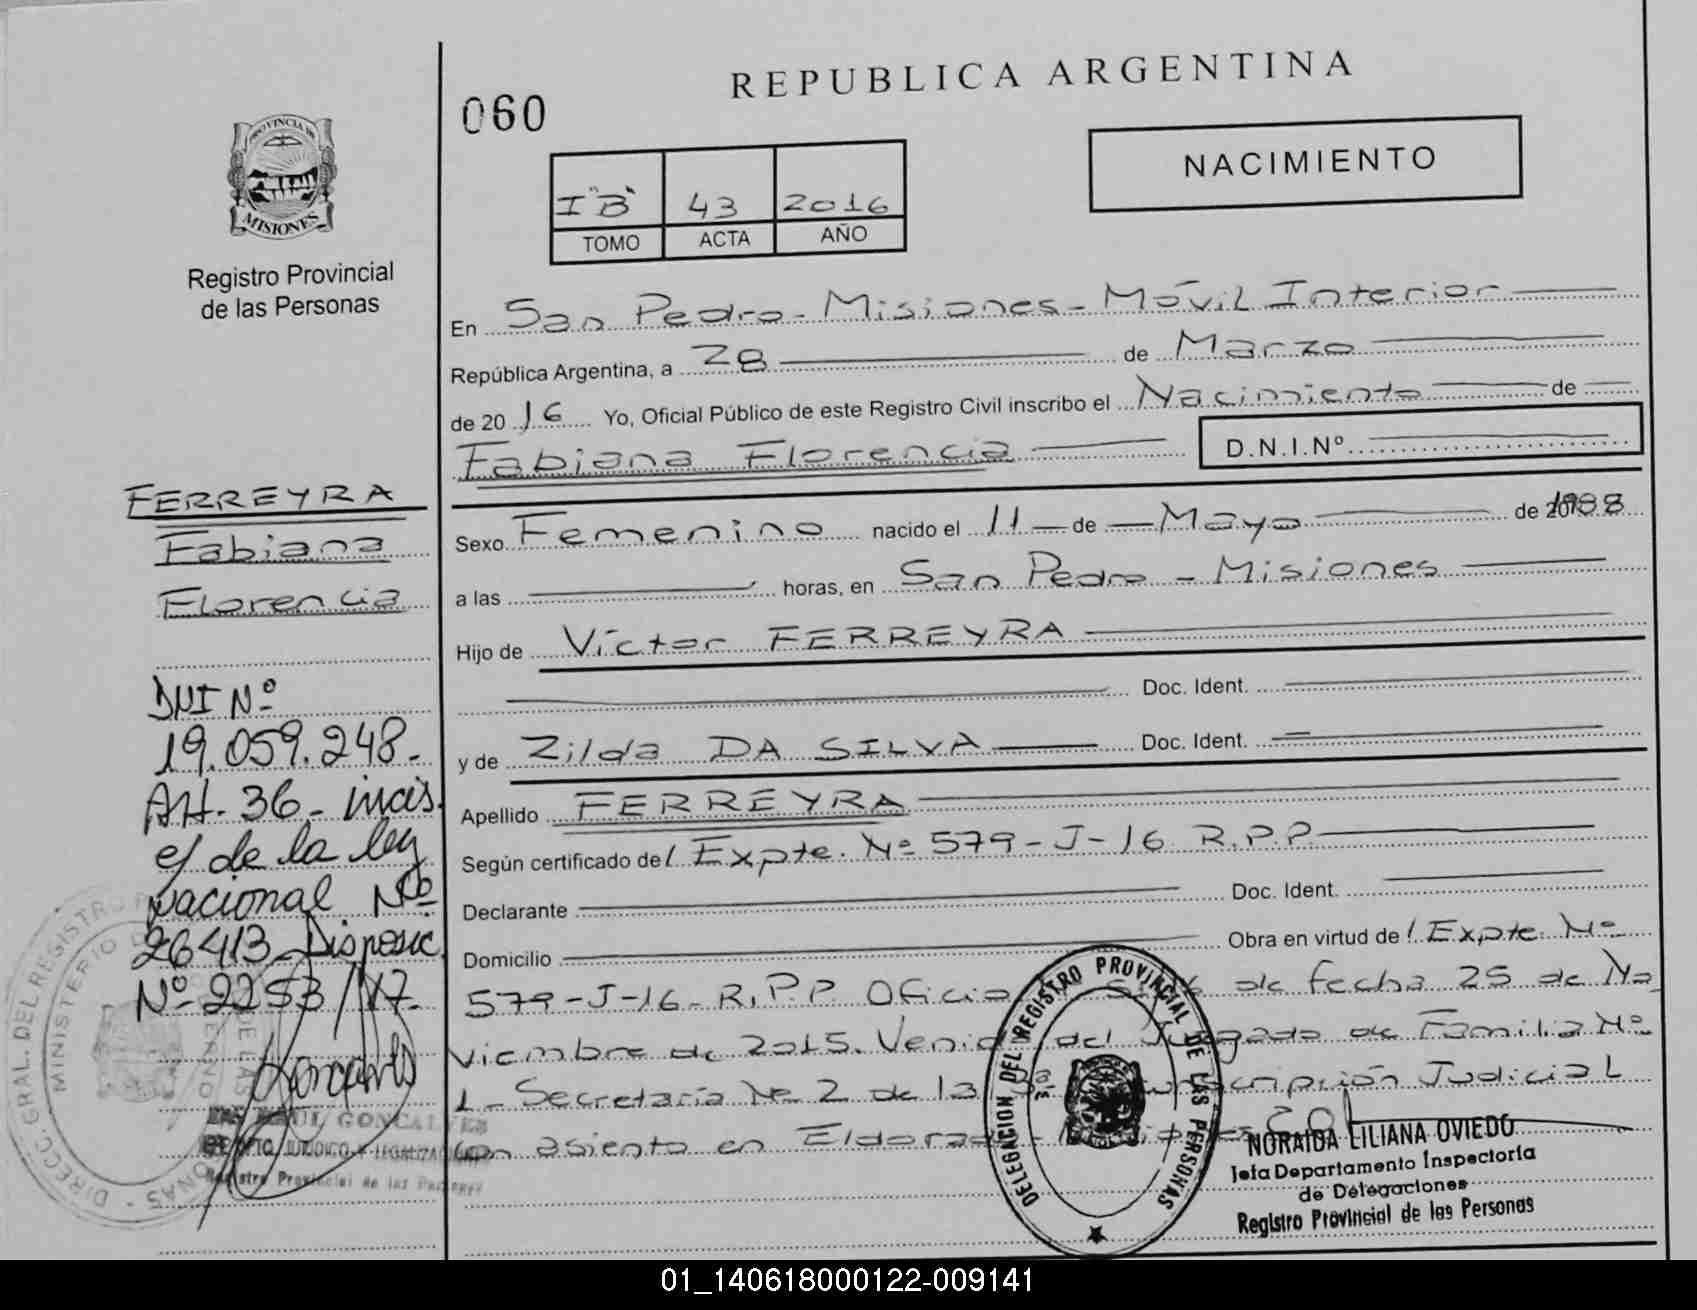 REPUBLICA ARGENTINA
060
NACIMIENTO
I "B" 43 2016
TOMO ACTA AÑO
PROVINCIA DE
MISIONES
Registro Provincial
de las Personas
En San Pedro - Misiones - Móvil Interior
República Argentina, a 28 de Marzo
de 2016 Yo, Oficial Público de este Registro Civil inscribo el Nacimiento de
Fabiana Florencia D.N.I.Nº
FERREYRA
Fabiana
Florencia
Sexo Femenino nacido el 11 de Mayo de 1988
a las horas, en San Pedro - Misiones
Hijo de Víctor FERREYRA
Doc. Ident.
y de Zilda DA SILVA Doc. Ident.
Apellido FERREYRA
Según certificado del Expte. Nº 579-J-16 R.P.P.
Declarante Doc. Ident.
Domicilio Obra en virtud del Expte. Nº
579-J-16- R.P.P. de fecha 25 de No
viembre de 2015. del Juzgado de Familia Nº
1 - Secretaría Nº 2 de la Judicial
con asiento en
DNI Nº
19.059.248.-
Art. 36 - incis
c/ de la ley
nacional Nº
26413 - Disposic
Nº 2253/17.-
DIRECC. GRAL. DEL REGISTRO
MINISTERIO
RAUL GONCALVES
JURIDICO Y
Registro Provincial de las Personas
DELEGACION DEL REGISTRO PROVINCIAL DE LAS PERSONAS
NORAIDA LILIANA OVIEDO
Jefa Departamento Inspectoría
de Delegaciones
Registro Provincial de las Personas
01_140618000122-009141